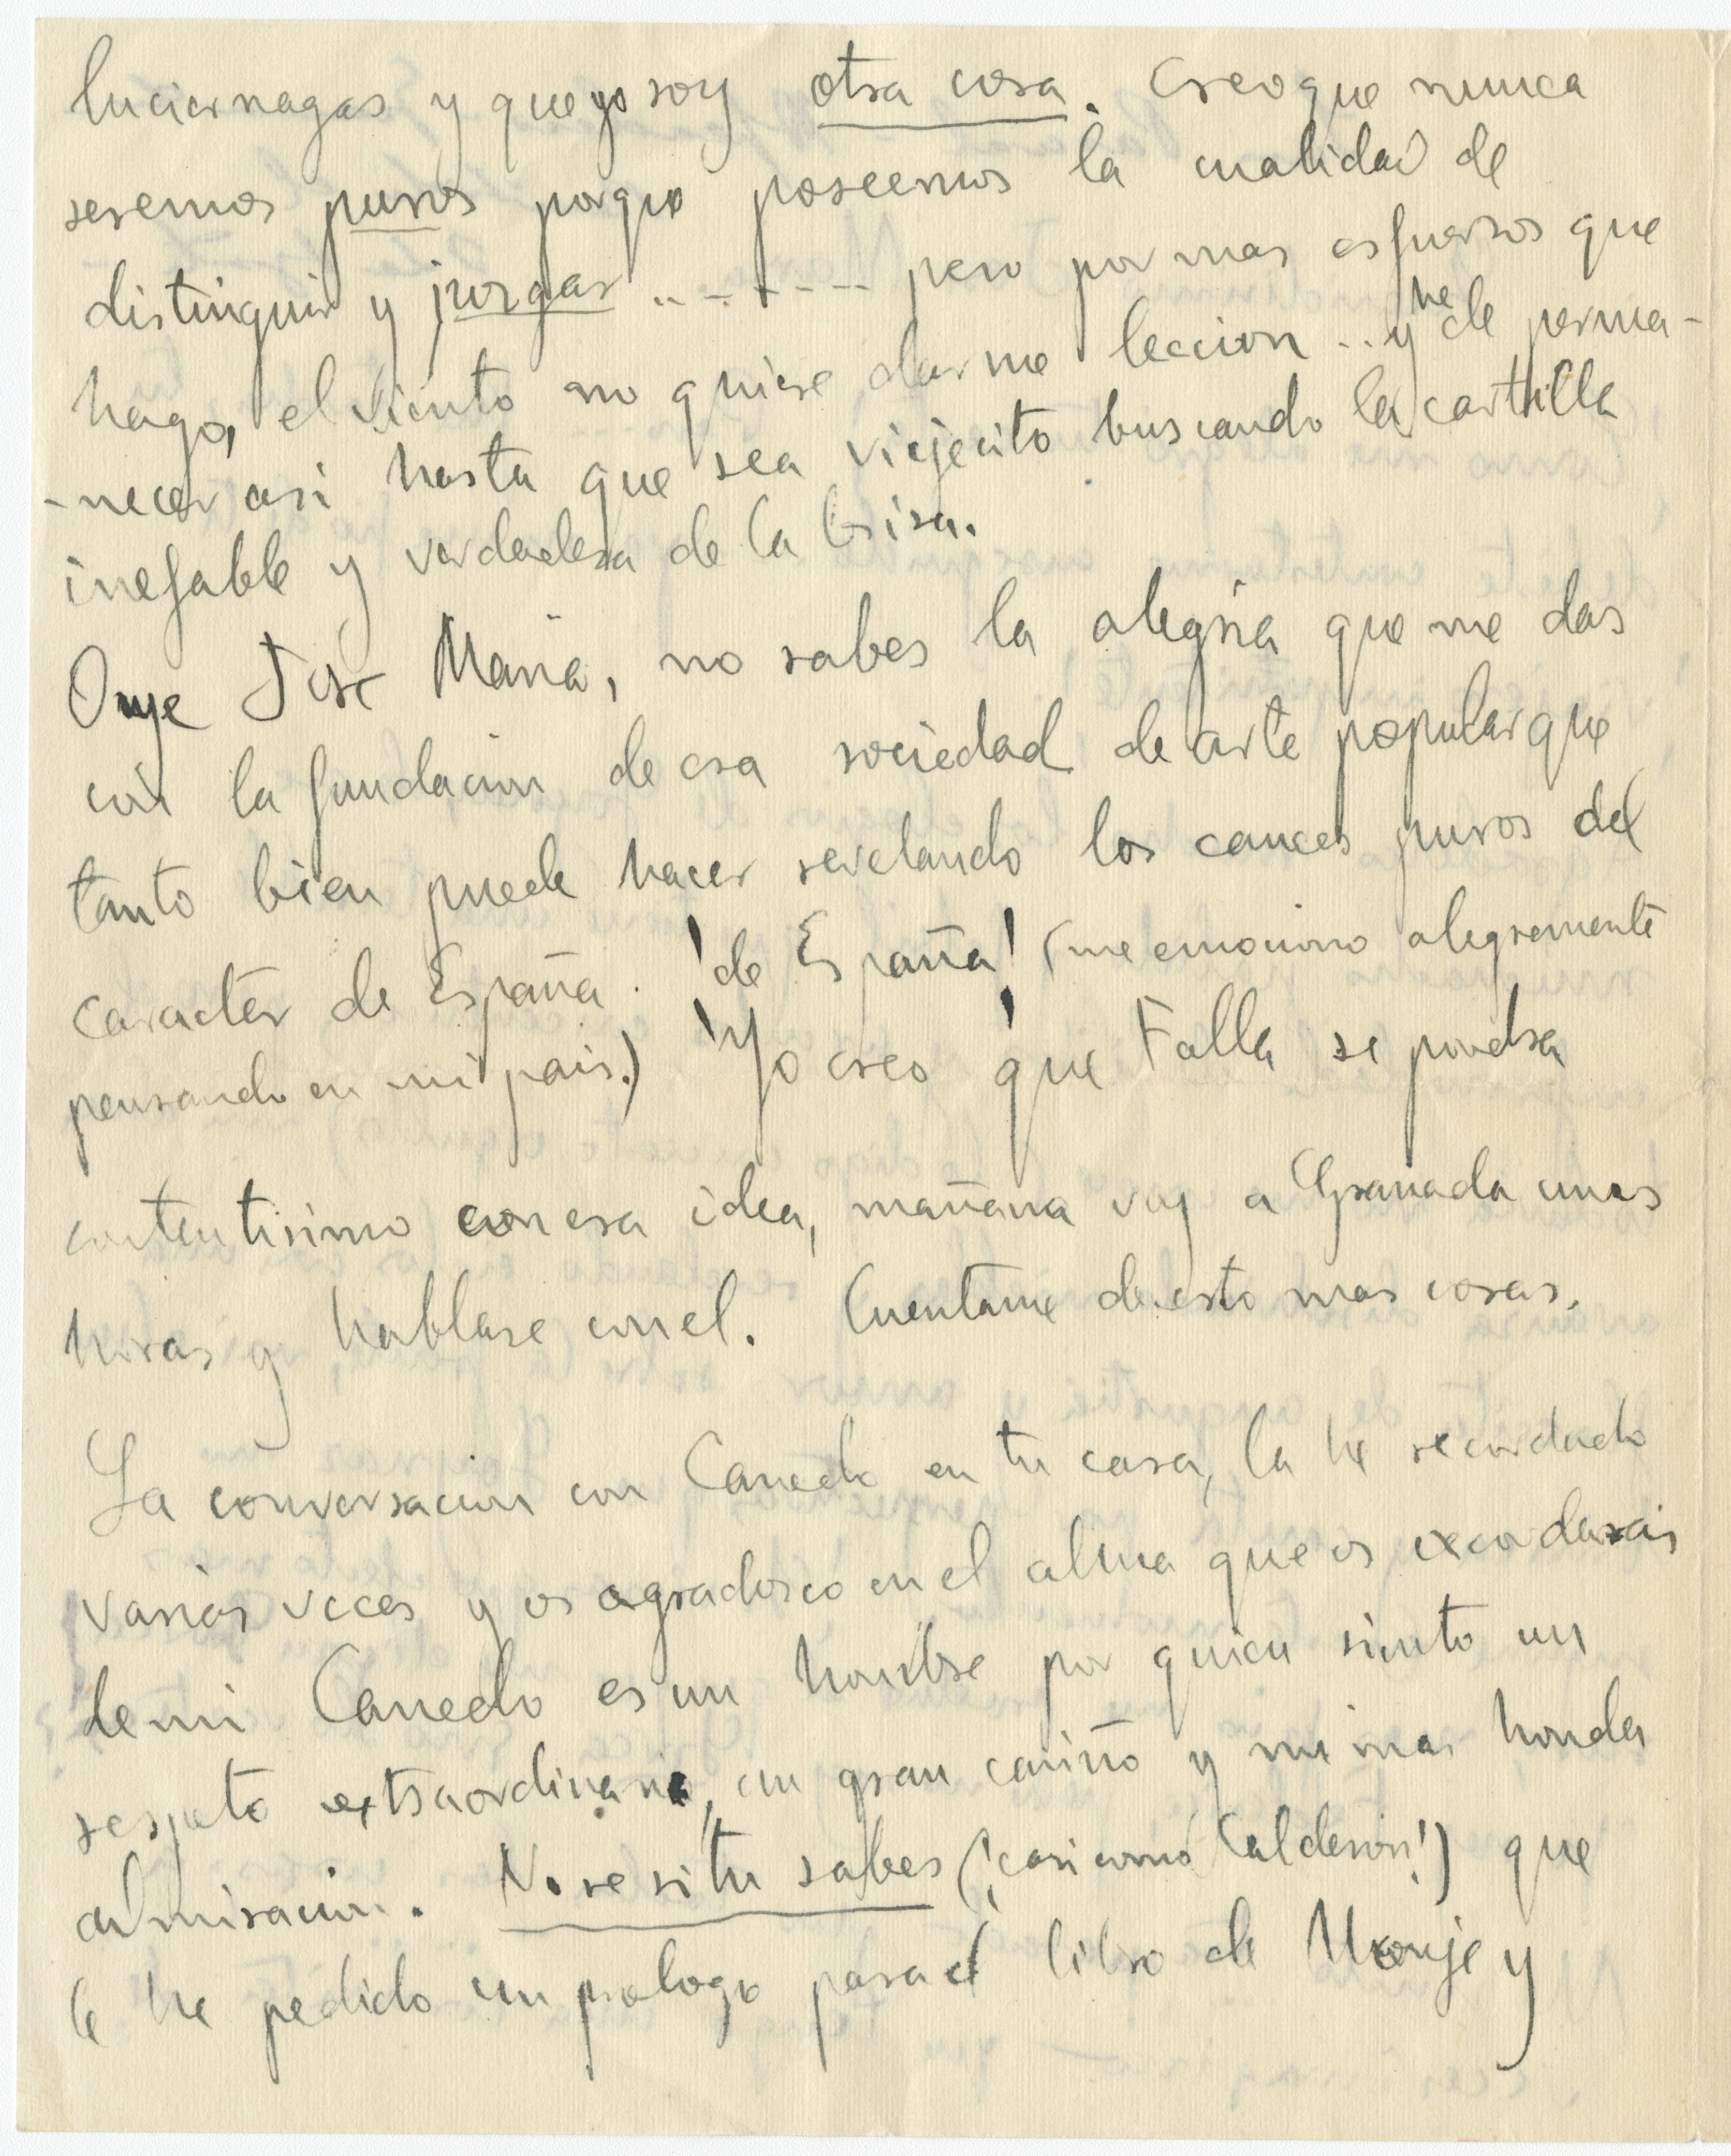 luciernagas y que yo soy otra cosa. Creo que nunca
seremos puros porque poseemos la cualidad de
distinguir y juzgar .. - - + - - - pero por mas esfuerzos que
hago, el viento no quiere darme leccion .. y he de perma-
-necer asi hasta que sea viejecito buscando la cartilla
inefable y verdadera de la brisa.
Oye Jose Maria, no sabes la alegria que me das
con la fundacion de esa sociedad de arte popular que
tanto bien puede hacer revelando los cauces puros del
caracter de España. ¡de España! (me emociono alegremente
pensando en mi pais.) ¡Yo creo que Falla se pondra
contentisimo con esa idea, mañana voy a Granada unas
horas y hablare con el. Cuentame de esto mas cosas.
La conversacion con Canedo en tu casa, la he recordado
varias veces y os agradezco en el alma que os recordarais
de mi Canedo es un hombre por quien siento un
respeto extraordinario, un gran cariño y mi mas honda
admiracion. No se si tu sabes (¡casi como Calderon!) que
le he pedido un prologo para el libro de Monje y